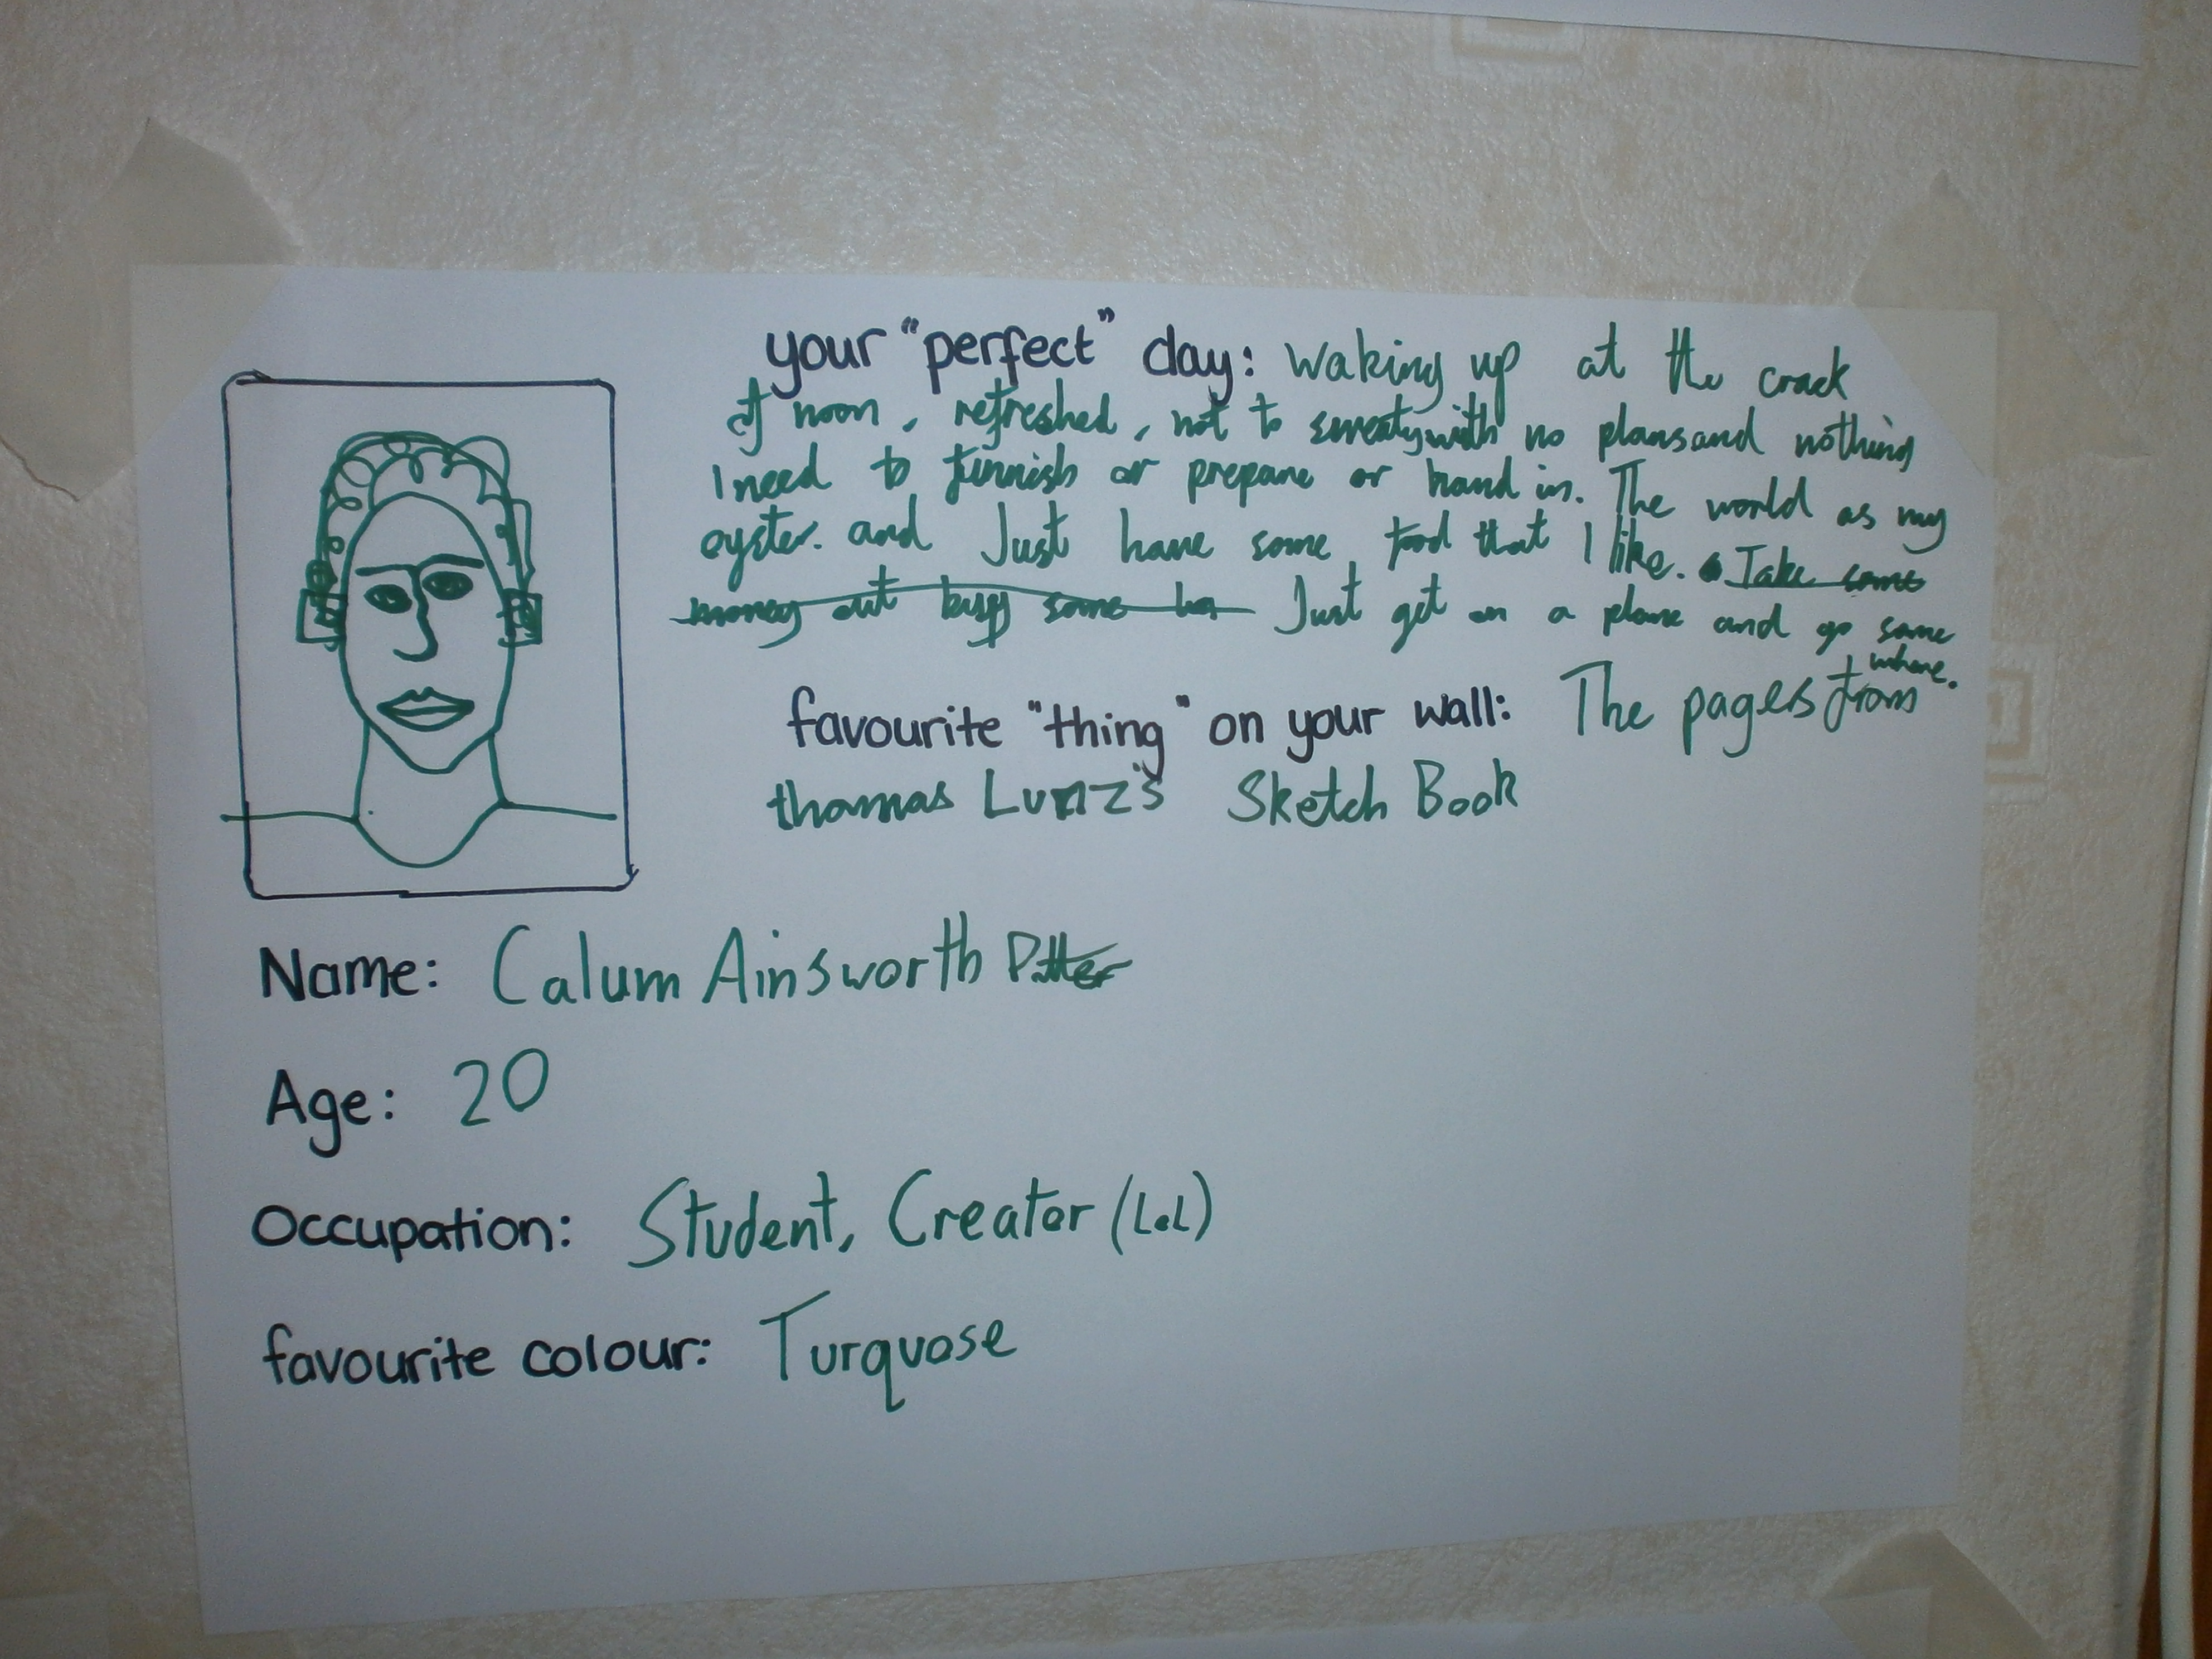 your "perfect" day: waking up at the crack
of noon, refreshed, not to sweaty with no plans and nothing
I need to finnish or prepare or hand in. The world as my
oyster. and Just have some food that I like. Take some
money out buy some Just get on a plane and go some
where.
favourite "thing" on your wall: The pages from
thomas Lunz's Sketch Book
Name: Calum Ainsworth
Age: 20
Occupation: Student, Creator (LoL)
favourite colour: Turquose